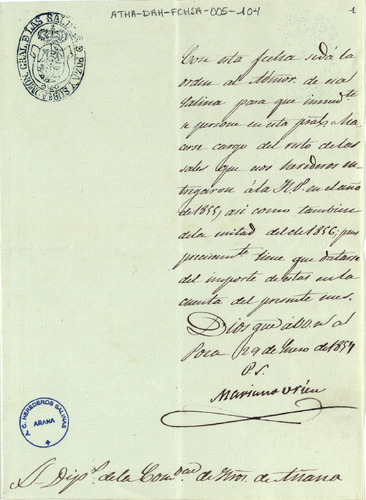 ATHA-DAH-FCHSA-005-104
1
ADMON. GRAL. DE LAS SALINAS DE POZA Y SUPS.
Con esta fecha se dá la
orden al Admor. de esa
Salina para que inmedte.
se persone en esta pral. á ha
cerse cargo del resto de las
sales que esos herederos en
tregaron á la H. P. en el año
de 1855, asi como tambien
de la mitad del de 1856; pues
precisamente tiene que datarse
del importe de estas en la
cuenta del presente mes.
Dios gue. á V.
Poza 29 de Enero de 1857
P. S.
Mariano
Y. C. HEREDEROS SALINAS
AÑANA
S. Dip. de la Com. de Hros. de Añana